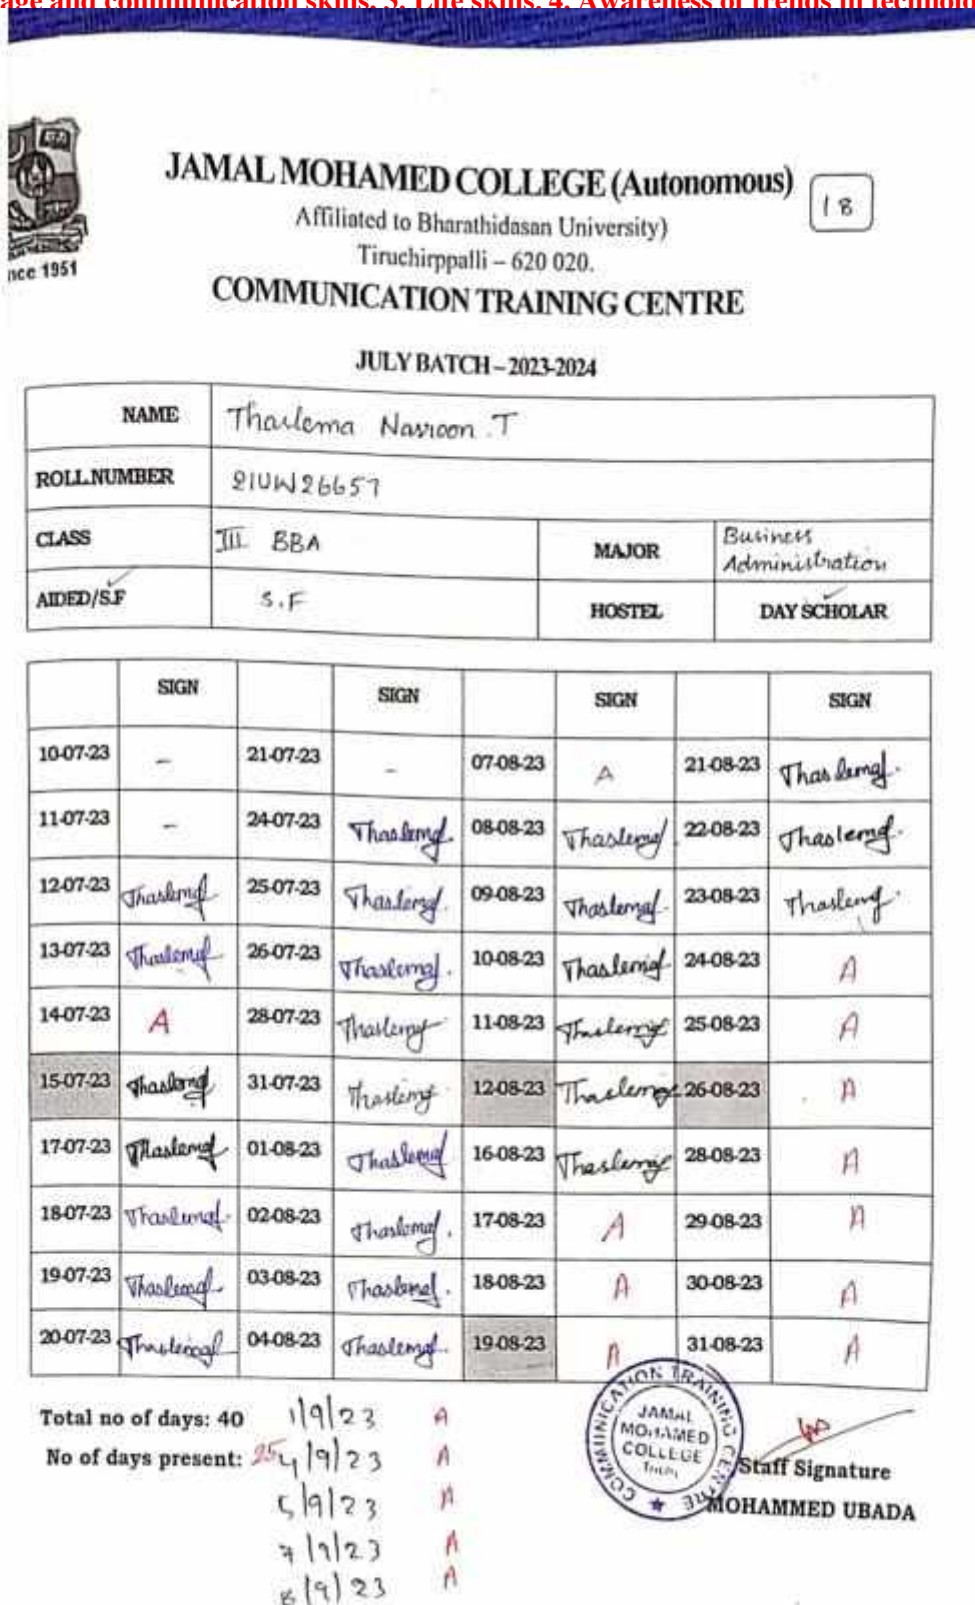 age and communication skills. 3. Life skills. 4. Awareness of trends in technolo
JAMAL MOHAMED COLLEGE (Autonomous)
18
Affiliated to Bharathidasan University)
Tiruchirppalli – 620 020.
nce 1951
COMMUNICATION TRAINING CENTRE
JULY BATCH – 2023-2024
NAME Thaslema Nasroon .T
ROLL NUMBER 21UW26657
CLASS III BBA MAJOR Business Administration
AIDED/S.F S.F HOSTEL DAY SCHOLAR
SIGN SIGN SIGN SIGN
10-07-23 – 21-07-23 – 07-08-23 A 21-08-23 Thaslema
11-07-23 – 24-07-23 Thaslema 08-08-23 Thaslema 22-08-23 Thaslema
12-07-23 Thaslema 25-07-23 Thaslema 09-08-23 Thaslema 23-08-23 Thaslema
13-07-23 Thaslema 26-07-23 Thaslema 10-08-23 Thaslema 24-08-23 A
14-07-23 A 28-07-23 Thaslema 11-08-23 Thaslema 25-08-23 A
15-07-23 Thaslema 31-07-23 Thaslema 12-08-23 Thaslema 26-08-23 A
17-07-23 Thaslema 01-08-23 Thaslema 16-08-23 Thaslema 28-08-23 A
18-07-23 Thaslema 02-08-23 Thaslema 17-08-23 A 29-08-23 A
19-07-23 Thaslema 03-08-23 Thaslema 18-08-23 A 30-08-23 A
20-07-23 Thaslema 04-08-23 Thaslema 19-08-23 A 31-08-23 A
Total no of days: 40 1/9/23 A
No of days present: 25 4/9/23 A
5/9/23 A
7/9/23 A
8/9/23 A
COMMUNICATION TRAINING CENTRE
JAMAL
MOHAMED
COLLEGE
Staff Signature
MOHAMMED UBADA